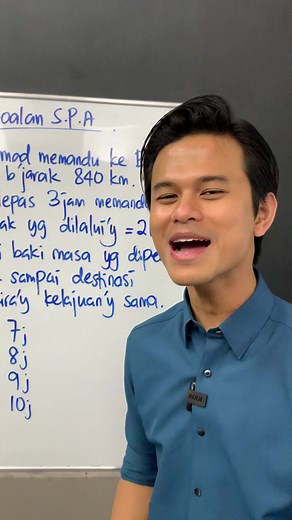 oalan S.P.A
mad memandu ke
b'jarak 840 km.
lepas 3 jam memandu
ak yg dilalui'y = 2
i baki masa yg dipe
sampai destinasi
ira'y kelajuan'y sama.
7j
8j
9j
10j